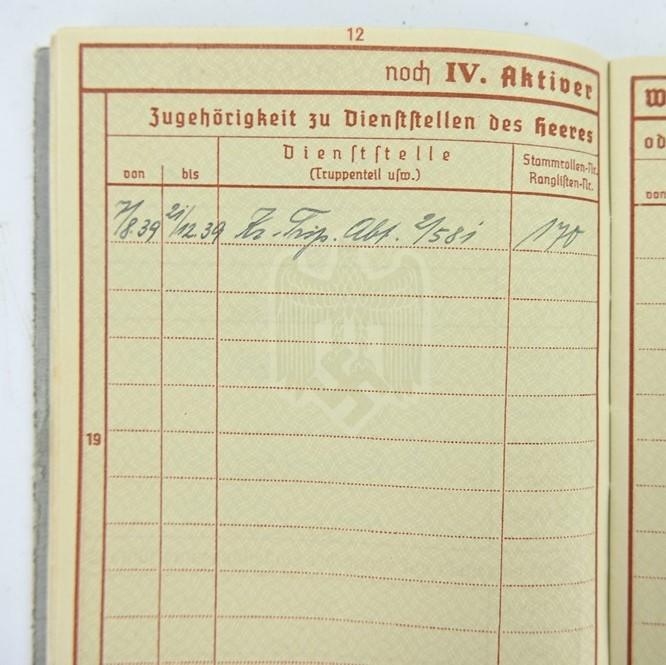 12
noch IV. Aktiver
Zugehörigkeit zu Dienststellen des Heeres
von
bis
Dienststelle
(Truppenteil usw.)
Stammrollen-Nr.
Ranglisten-Nr.
7/8.39 21/12.39 Abt. 2/581 170
19
W
od
von